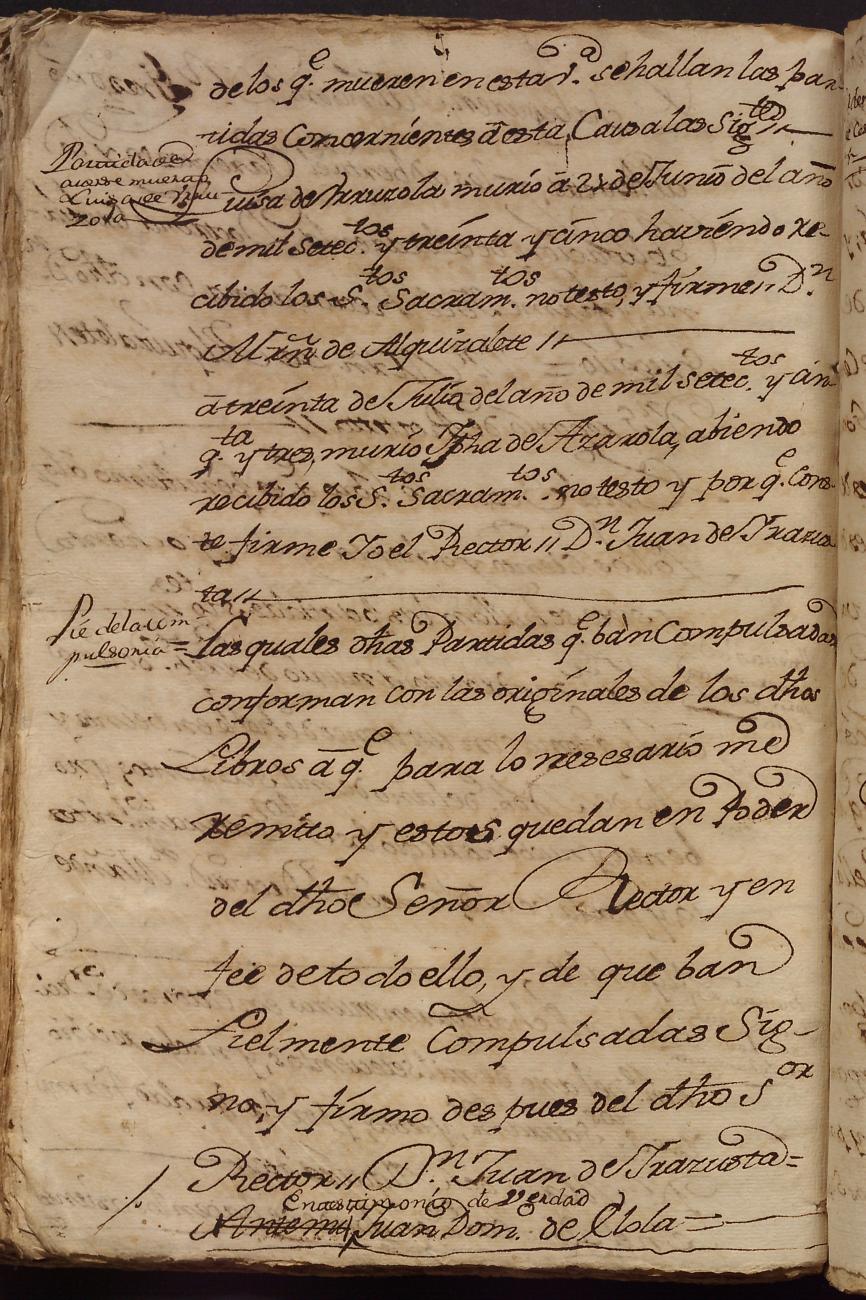 de los q.e mueren en esta v.a se hallan las par-
tidas Concernientes á esta Causa las Sig.tes //
Partida de
muerte
Luisa de Yrru
zola
Luisa de Yrruzola murio á 21 de Junio del año
de mil setec.tos y treinta y cinco haviendo re-
cibido los S.tos Sacram.tos no testo, y firme // D.n
Mrñ. de Alquizalete //
á treinta de Julio del año de mil setec.tos y cin-
q.ta y tres, murio Jpha de Arazola, abiendo
recibido los S.tos Sacram.tos no testo y por q.e Cons-
te firme Yo el Rector // D.n Juan de Yrazus-
ta //
Pie de la com
pulsoria =
Las quales dhas Partidas q.e ban Compulsadas
conforman con las originales de los dhos
Libros á q.e para lo nesesario me
remito y estos quedan en Poder
del dho Señor Rector y en
fee de todo ello, y de que ban
Fielmente Compulsadas Sig-
no, y firmo despues del dho S.or
Rector // D.n Juan de Yrazusta =
En testimonio de Verdad
Antemi, Juan Dom.o de Elola =